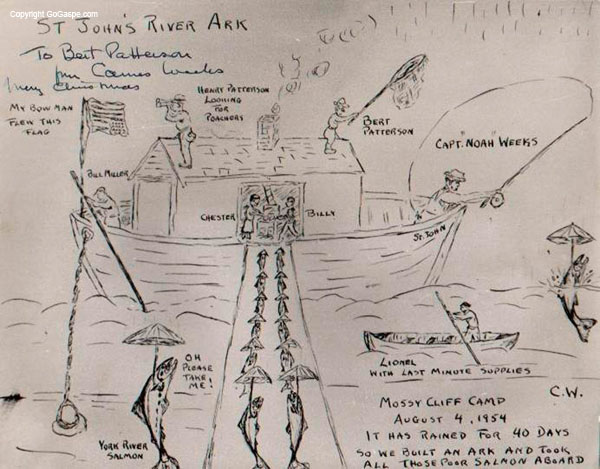 Copyright GoGaspe.com
ST JOHN'S RIVER ARK
To Bert Patterson
Weeks
Christmas
MY BOW MAN
FLEW THIS
FLAG
HENRY PATTERSON
LOOKING
FOR
POACHERS
BERT
PATTERSON
CAPT. "NOAH" WEEKS
BILL MILLER
CHESTER
BILLY
ST. JOHN
OH
PLEASE
TAKE
ME!
LIONEL
WITH LAST MINUTE SUPPLIES
C.W.
YORK RIVER
SALMON
MOSSY CLIFF CAMP
AUGUST 4, 1954
IT HAS RAINED FOR 40 DAYS
SO WE BUILT AN ARK AND TOOK
ALL THOSE POOR SALMON ABOARD